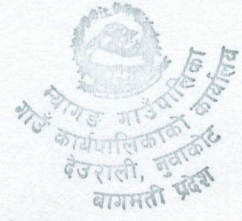 म्यागङ गाउँपालिका
गाउँ कार्यपालिकाको कार्यालय
देउराली, नुवाकोट
बागमती प्रदेश